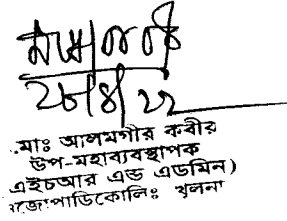 ২৮/৪/২২
মোঃ আলমগীর কবীর
উপ-মহাব্যবস্থাপক
এইচআর এন্ড এডমিন)
ওজোপাডিকোলিঃ খুলনা